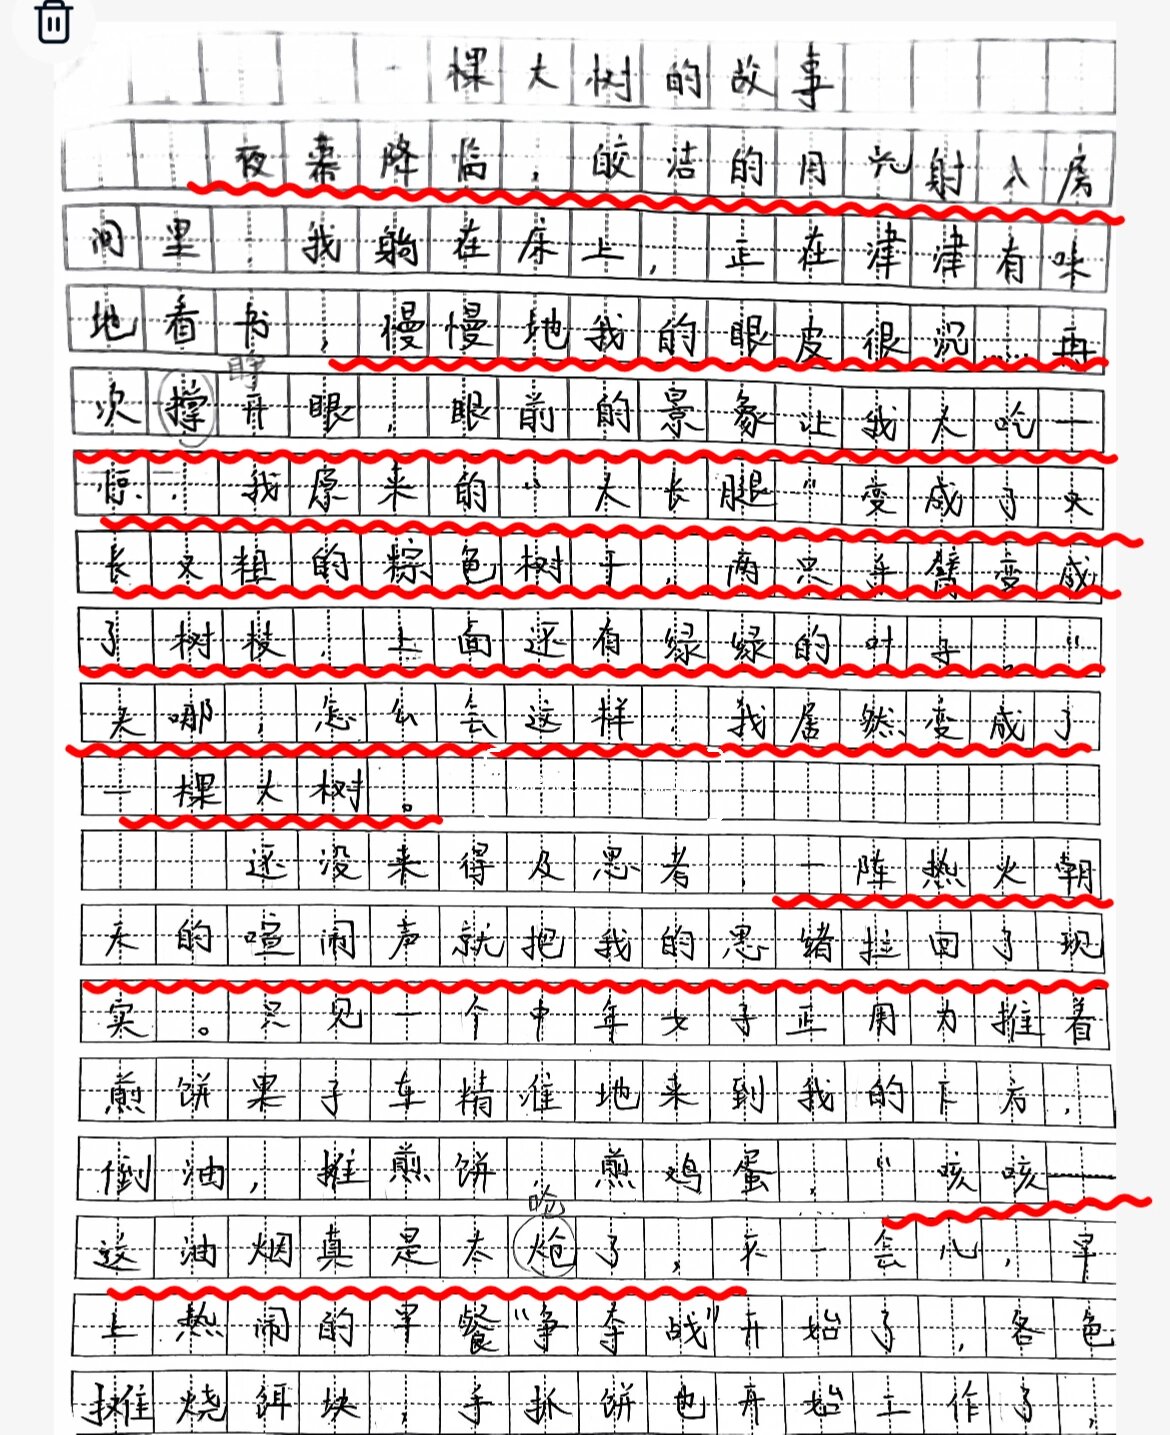 一棵大树的故事
夜幕降临，皎洁的月光射入房
间里，我躺在床上，正在津津有味
地看书，慢慢地我的眼皮很沉……再
睁
次撑开眼，眼前的景象让我大吃一
惊：我原来的“大长腿”变成了又
长又粗的棕色树干，两只手臂变成
了树枝，上面还有绿绿的叶子，“
天哪，怎么会这样，我居然变成了
一棵大树。
还没来得及思考，一阵热火朝
天的喧闹声就把我的思绪拉回了现
实。只见一个中年女子正用力推着
煎饼果子车精准地来到我的下方，
倒油，摊煎饼 煎鸡蛋，“咳咳——
呛
这油烟真是太炝了，不一会儿，早
上热闹的早餐“争夺战”开始了，各色
摊烧饵块，手抓饼也开始工作了，